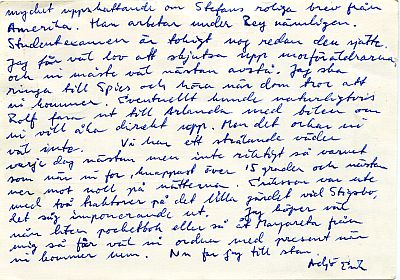 mycket uppskattande om Stefans roliga brev från
Amerika. Han arbetar under Beg nämligen.
Studentexamen är tokigt nog redan den sjätte.
Jag får väl lov att skjutsa upp morföräldrarna,
och ni måste väl nästan avstå. Jag ska
ringa till Spies och höra när dom tror att
ni kommer. Eventuellt kunde naturligtvis
Rolf fara ut till Arlanda med bilen om
ni vill åka direkt upp. Men det orkar ni
väl inte. Vi har ett strålande väder
varje dag nästan men inte riktigt så varmt
som när ni for, knappast över 15 grader och nästan
ner mot noll på nätterna. Eriksson var ute
med två traktorer på det lilla gärdet vid Stigsbo,
det såg imponerande ut. Jag köper väl
när liten pocketbok eller så åt Margareta från
mig så får väl ni ordna med present när
ni kommer hem. Nu far jag till stan.
Adjö